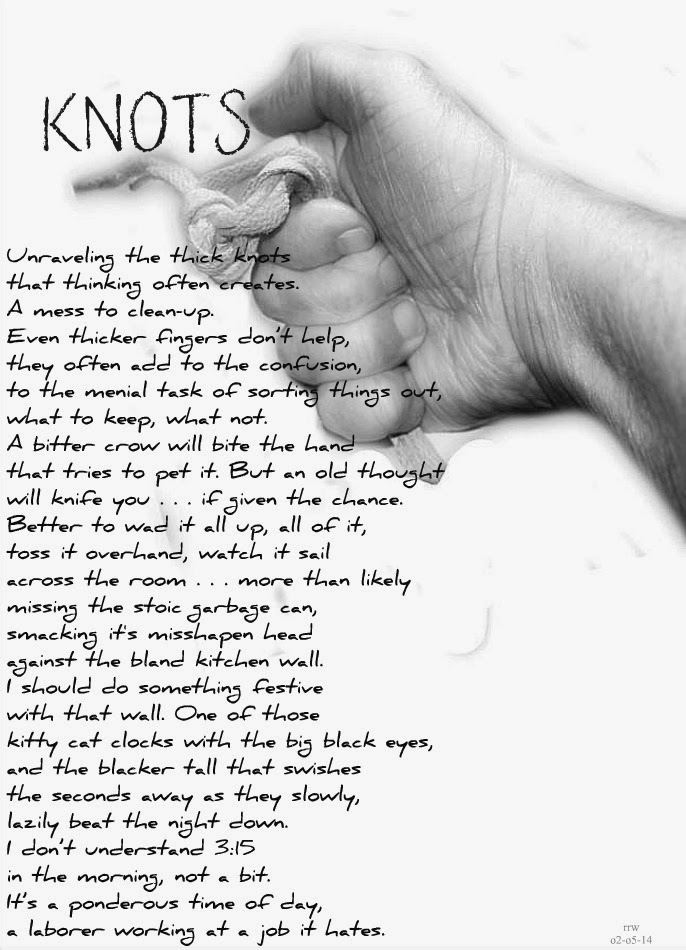 KNOTS
Unraveling the thick knots
that thinking often creates.
A mess to clean-up.
Even thicker fingers don't help,
they often add to the confusion,
to the menial task of sorting things out,
what to keep, what not.
A bitter crow will bite the hand
that tries to pet it. But an old thought
will knife you . . . if given the chance.
Better to wad it all up, all of it,
toss it overhand, watch it sail
across the room . . . more than likely
missing the stoic garbage can,
smacking it's misshapen head
against the bland kitchen wall.
I should do something festive
with that wall. One of those
kitty cat clocks with the big black eyes,
and the blacker tall that swishes
the seconds away as they slowly,
lazily beat the night down.
I don't understand 3:15
in the morning, not a bit.
It's a ponderous time of day,
a laborer working at a job it hates.
rrw
o2-o5-14